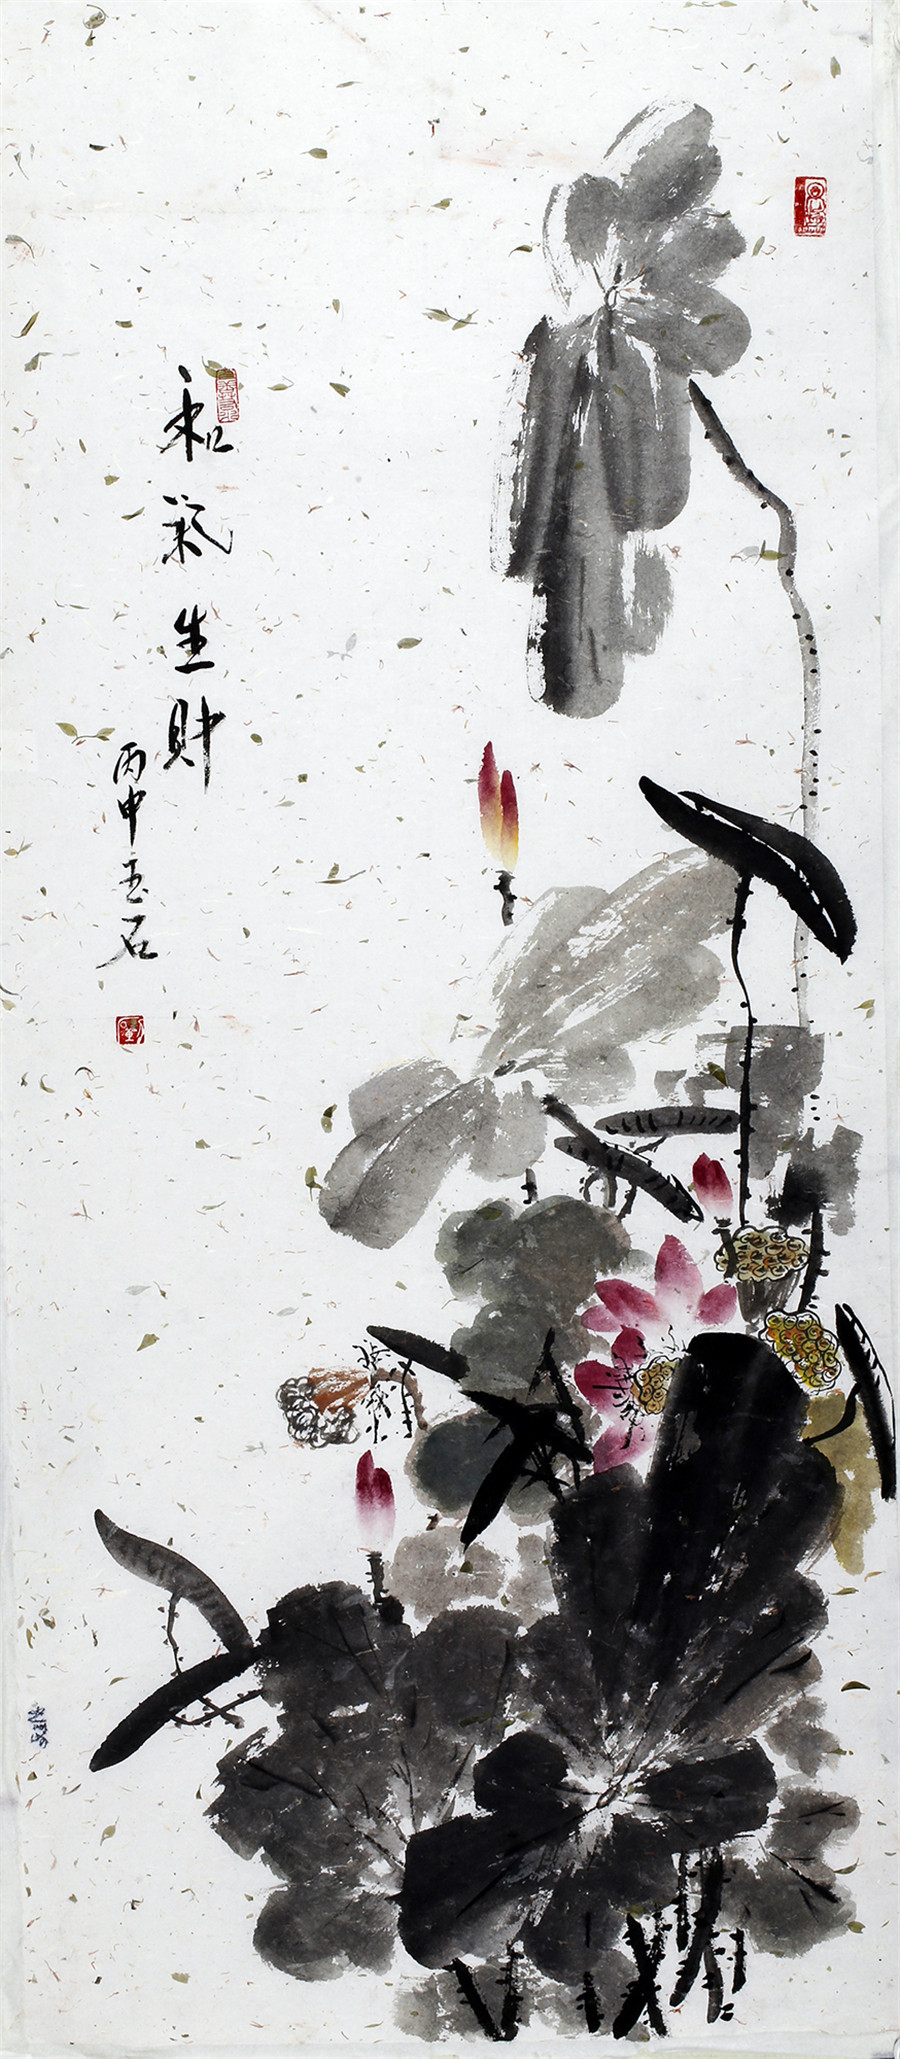 和氣生財
丙申玉石